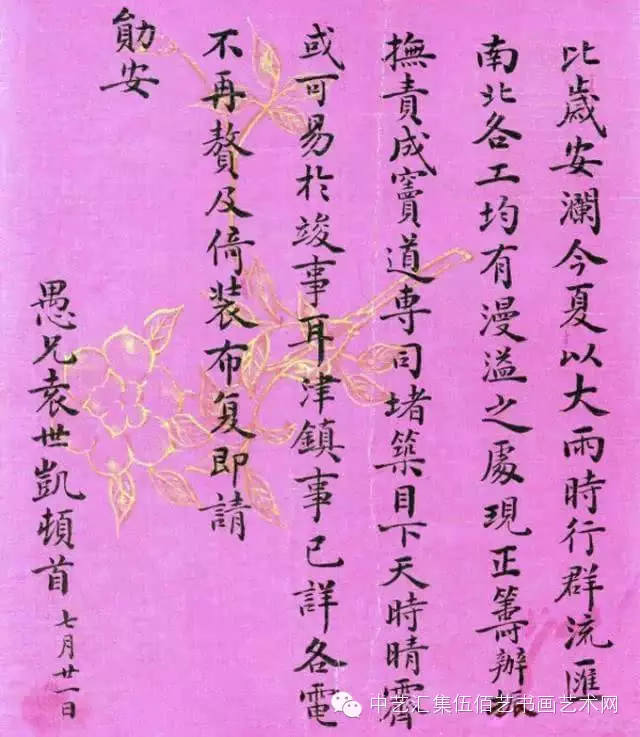 比歲安瀾今夏以大雨時行群流匯
南北各工均有漫溢之處現正籌辦振
撫責成竇道專司堵築目下天時晴霽
或可易於竣事耳津鎮事已詳各電
不再贅及倚裝布复即請
勛安
愚兄袁世凱頓首 七月廿一日
中艺汇集伍佰艺书画艺术网